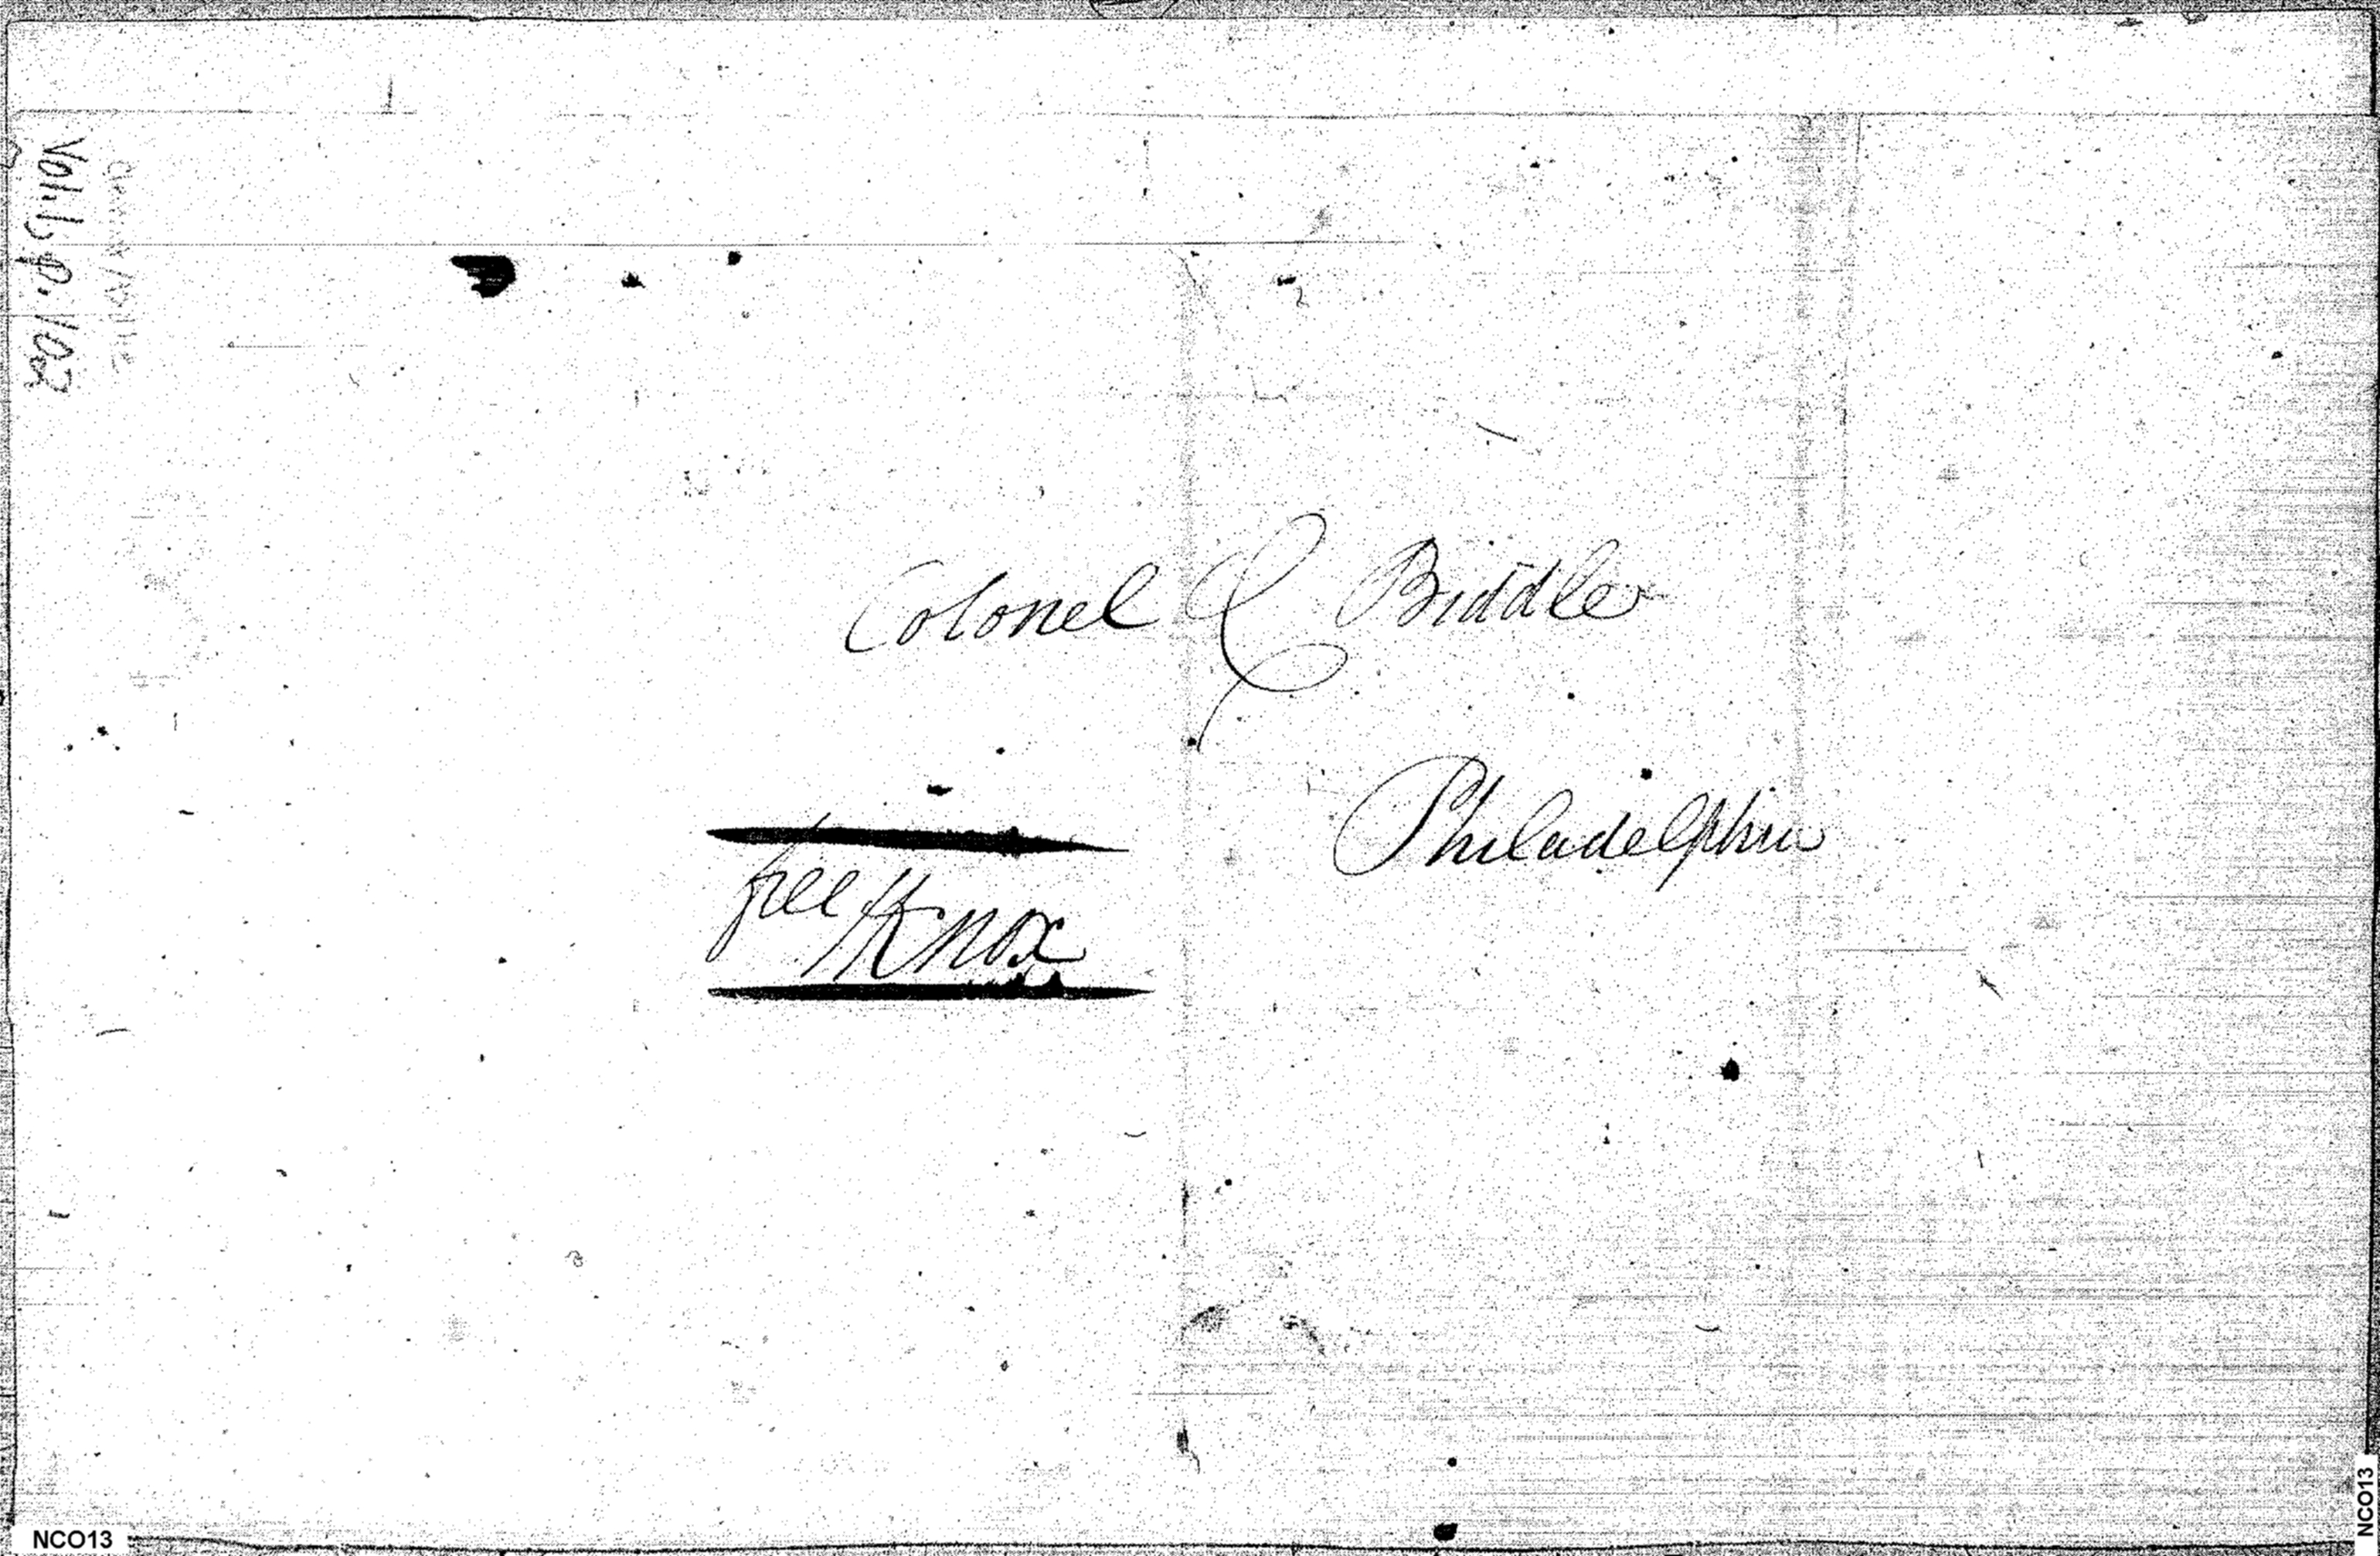 Vol. 1, p. 102
Colonel C Biddle
Philadelphia
free
HKnox
NCO13
NCO13